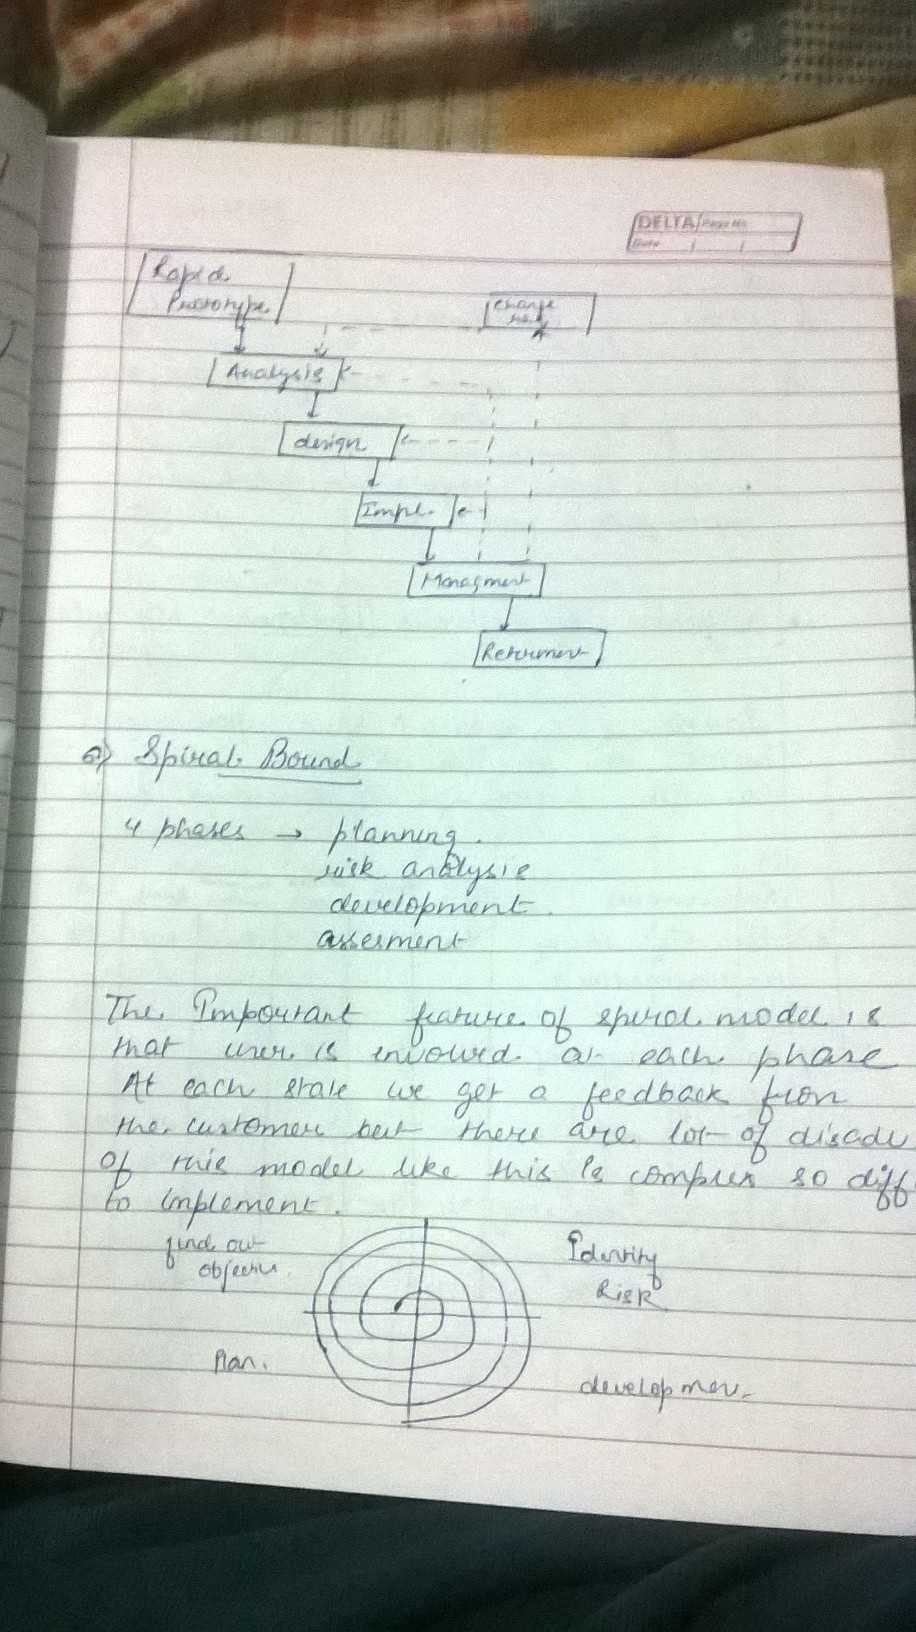 DELTA Page No.
Date
Rapid
Prototype
Change
req
Analysis
design
Impl.
Managment
Retirment
Spiral Bound
4 phases → planning.
risk analysis
development
assesment
The Important feature of spiral model is
that user is involved at each phase
At each state we get a feedback from
the customer but there are lot of disadv
of this model like this is complex so diff
to implement.
find out
objective.
Identify
Risk
Plan.
development